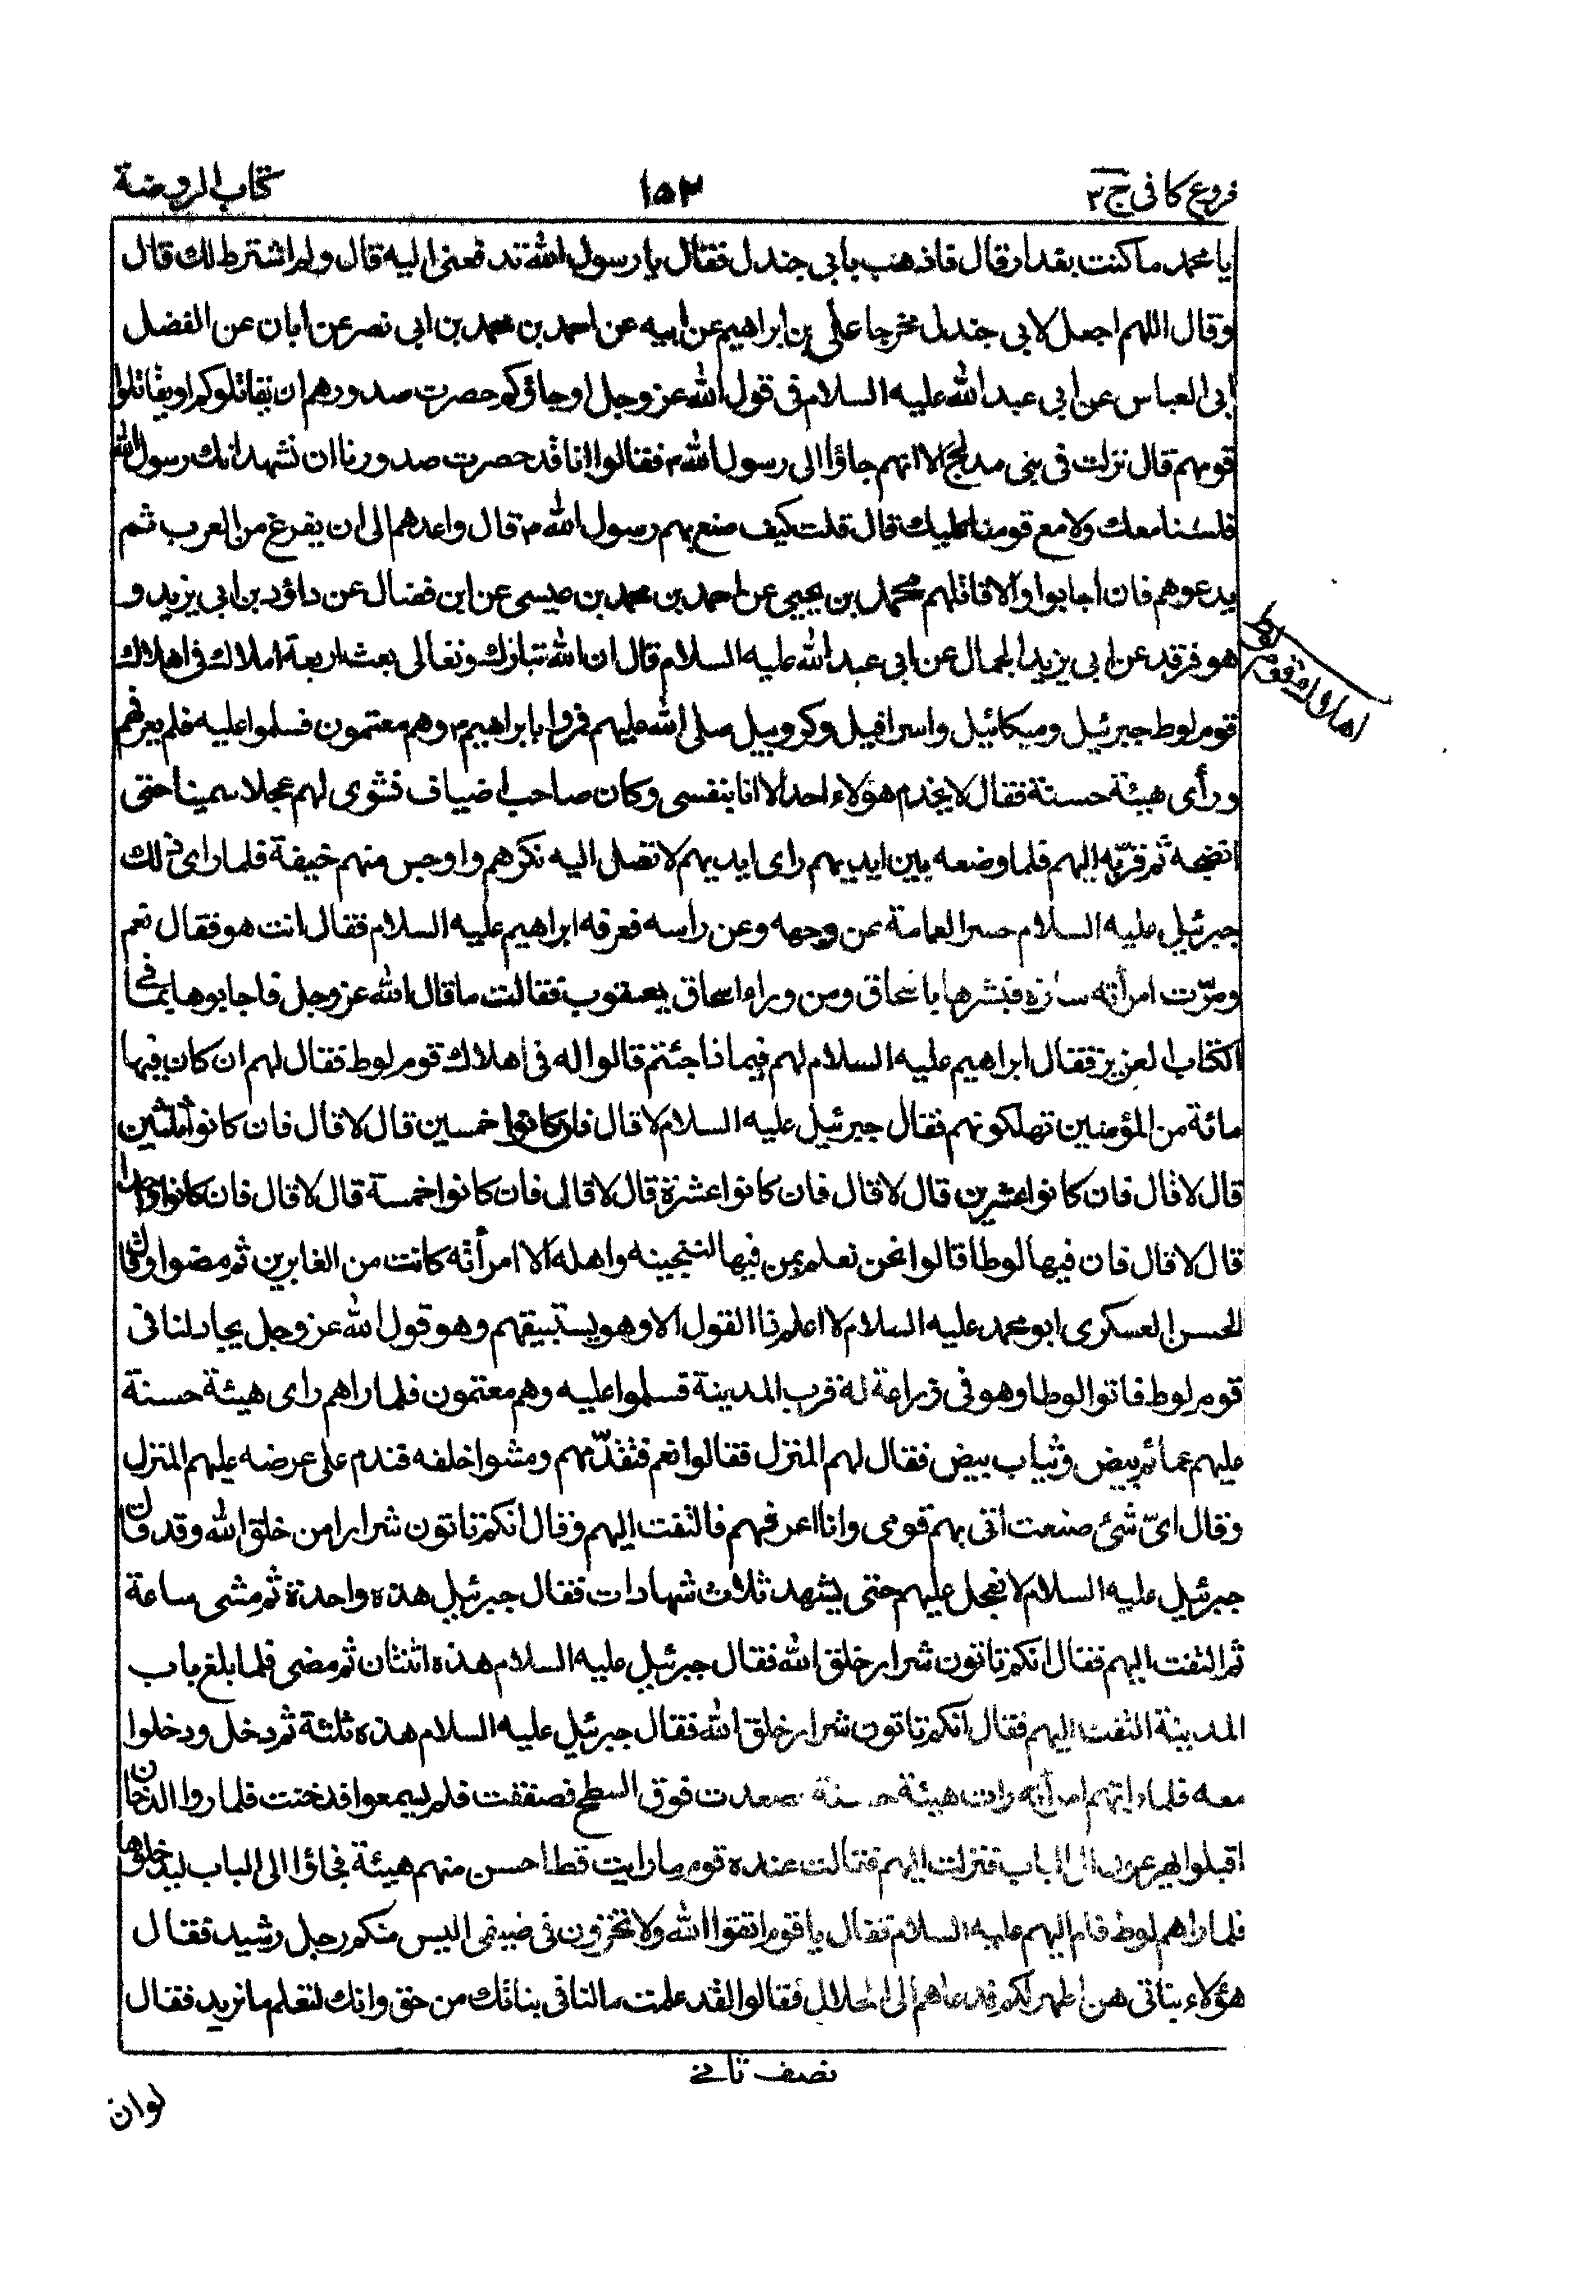 فروع كافى ج ٣
١٥٢
كتاب الروضة
يا محمد ما كنت بغدار قال فاذهب بابى جندل فقال يا رسول الله تد فعنى اليه قال ولم اشترط لك قال
وقال اللهم اجعل لابى جندل مخرجا على بن ابراهيم عن ابيه عن احمد بن محمد بن ابى نصر عن ابان عن الفضل
ابى العباس عن ابى عبد الله عليه السلام فى قول الله عز وجل او جاؤكم حصرت صدورهم ان يقاتلوكم او يقاتلوا
قومهم قال نزلت فى بنى مدلج لانهم جاؤا الى رسول الله م فقالوا انا قد حصرت صدورنا ان نشهد انك رسول الله
فلسنا معك ولا مع قومنا عليك قال قلت كيف صنع بهم رسول الله م قال واعدهم الى ان يفرغ من العرب ثم
يدعوهم فان اجابوا والا قاتلهم محمد بن يحيى عن احمد بن محمد بن عيسى عن ابن فضال عن داؤد بن ابى يزيد و
هو فرقد عن ابى يزيد الجمال عن ابى عبد الله عليه السلام قال ان الله تبارك وتعالى بعث اربعة املاك فى اهلاك
قوم لوط جبرئيل وميكائيل واسرافيل وكروبيل صلى الله عليهم فمروا بابراهيم م وهم معتمون فسلموا عليه فلم يعرفهم
ورأى هيئة حسنة فقال لا يخدم هؤلاء احد الا انا بنفسى وكان صاحب اضياف فشوى لهم عجلا سمينا حتى
انضجه ثم قربه اليهم فلما وضعه بين ايديهم راى ايديهم لا تصل اليه نكرهم واوجس منهم خيفة فلما راى ذلك
جبرئيل عليه السلام حسر العمامة عن وجهه وعن راسه فعرفه ابراهيم عليه السلام فقال انت هو فقال نعم
ومرّت امرأته سارة فبشرها باسحاق ومن وراء اسحاق يعقوب فقالت ما قال الله عز وجل فاجابوها بما فى
الكتاب العزيز فقال ابراهيم عليه السلام لهم فيما ذا جئتم قالوا له فى اهلاك قوم لوط فقال لهم ان كان فيها
مائة من المؤمنين تهلكونهم فقال جبرئيل عليه السلام لا قال فان كانوا خمسين قال لا قال فان كانوا ثلثين
قال لا قال فان كانوا عشرين قال لا قال فان كانوا عشرة قال لا قال فان كانوا خمسة قال لا قال فان كانوا واحدا
قال لا قال فان فيها لوطا قالوا نحن نعلم بمن فيها لننجينه واهله الا امرأته كانت من الغابرين ثم مضوا وقال
الحسن العسكرى ابو محمد عليه السلام لا اعلم ذا القول الا وهو يستبيقهم وهو قول الله عز وجل يجادلنا فى
قوم لوط فاتوا لوطا وهو فى زراعة له قرب المدينة فسلموا عليه وهم معتمون فلما راهم راى هيئة حسنة
عليهم عمائم بيض وثياب بيض فقال لهم المنزل فقالوا نعم فتقدّمهم ومشوا خلفه فندم على عرضه عليهم المنزل
وقال اىّ شئ صنعت اتى بهم قومى وانا اعرفهم فالتفت اليهم وقال انكم تاتون شرارا من خلق الله وقد قال
جبرئيل عليه السلام لا نعجل عليهم حتى يشهد ثلاث شهادات فقال جبرئيل هذه واحدة ثم مشى ساعة
ثم التفت اليهم فقال انكم تاتون شرار خلق الله فقال جبرئيل عليه السلام هذه اثنتان ثم مضى فلما بلغ باب
المدينة التفت اليهم فقال انكم تاتون شرار خلق الله فقال جبرئيل عليه السلام هذه ثلثة ثم دخل ودخلوا
معه فلما راتهم امرأته رات هيئة حسنة صعدت فوق السطح فصفقت فلم يسمعوا فدخنت فلما روا الدخان
اقبلوا يهرعون الى الباب فنزلت اليهم فقالت عنده قوم ما رايت قط احسن منهم هيئة فجاؤا الى الباب ليدخلوها
فلما راهم لوط قام اليهم عليه السلام فقال يا قوم اتقوا الله ولا تخزون فى ضيفى اليس منكم رجل رشيد فقال
هؤلاء بناتى هن اطهر لكم فدعاهم الى الحلال فقالوا لقد علمت ما لنا فى بناتك من حق وانك لتعلم ما نريد فقال
نصف ثانى
لوان